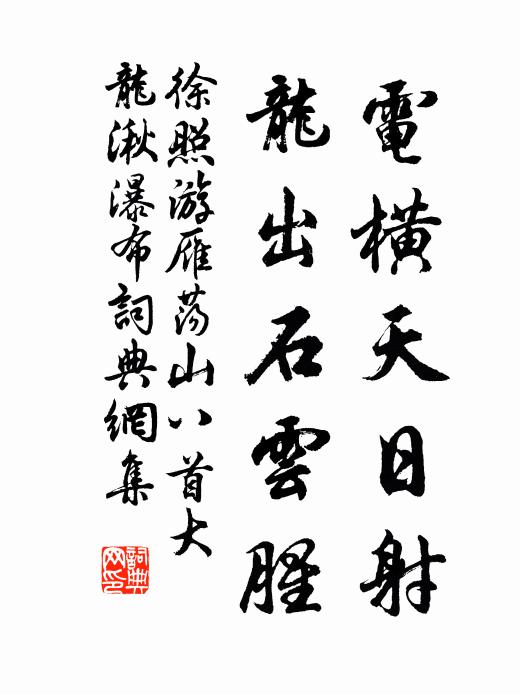 電橫天日射
龍出石雲腥
徐照游雁蕩山八首大
龍湫瀑布詞典網集
詞典
网印